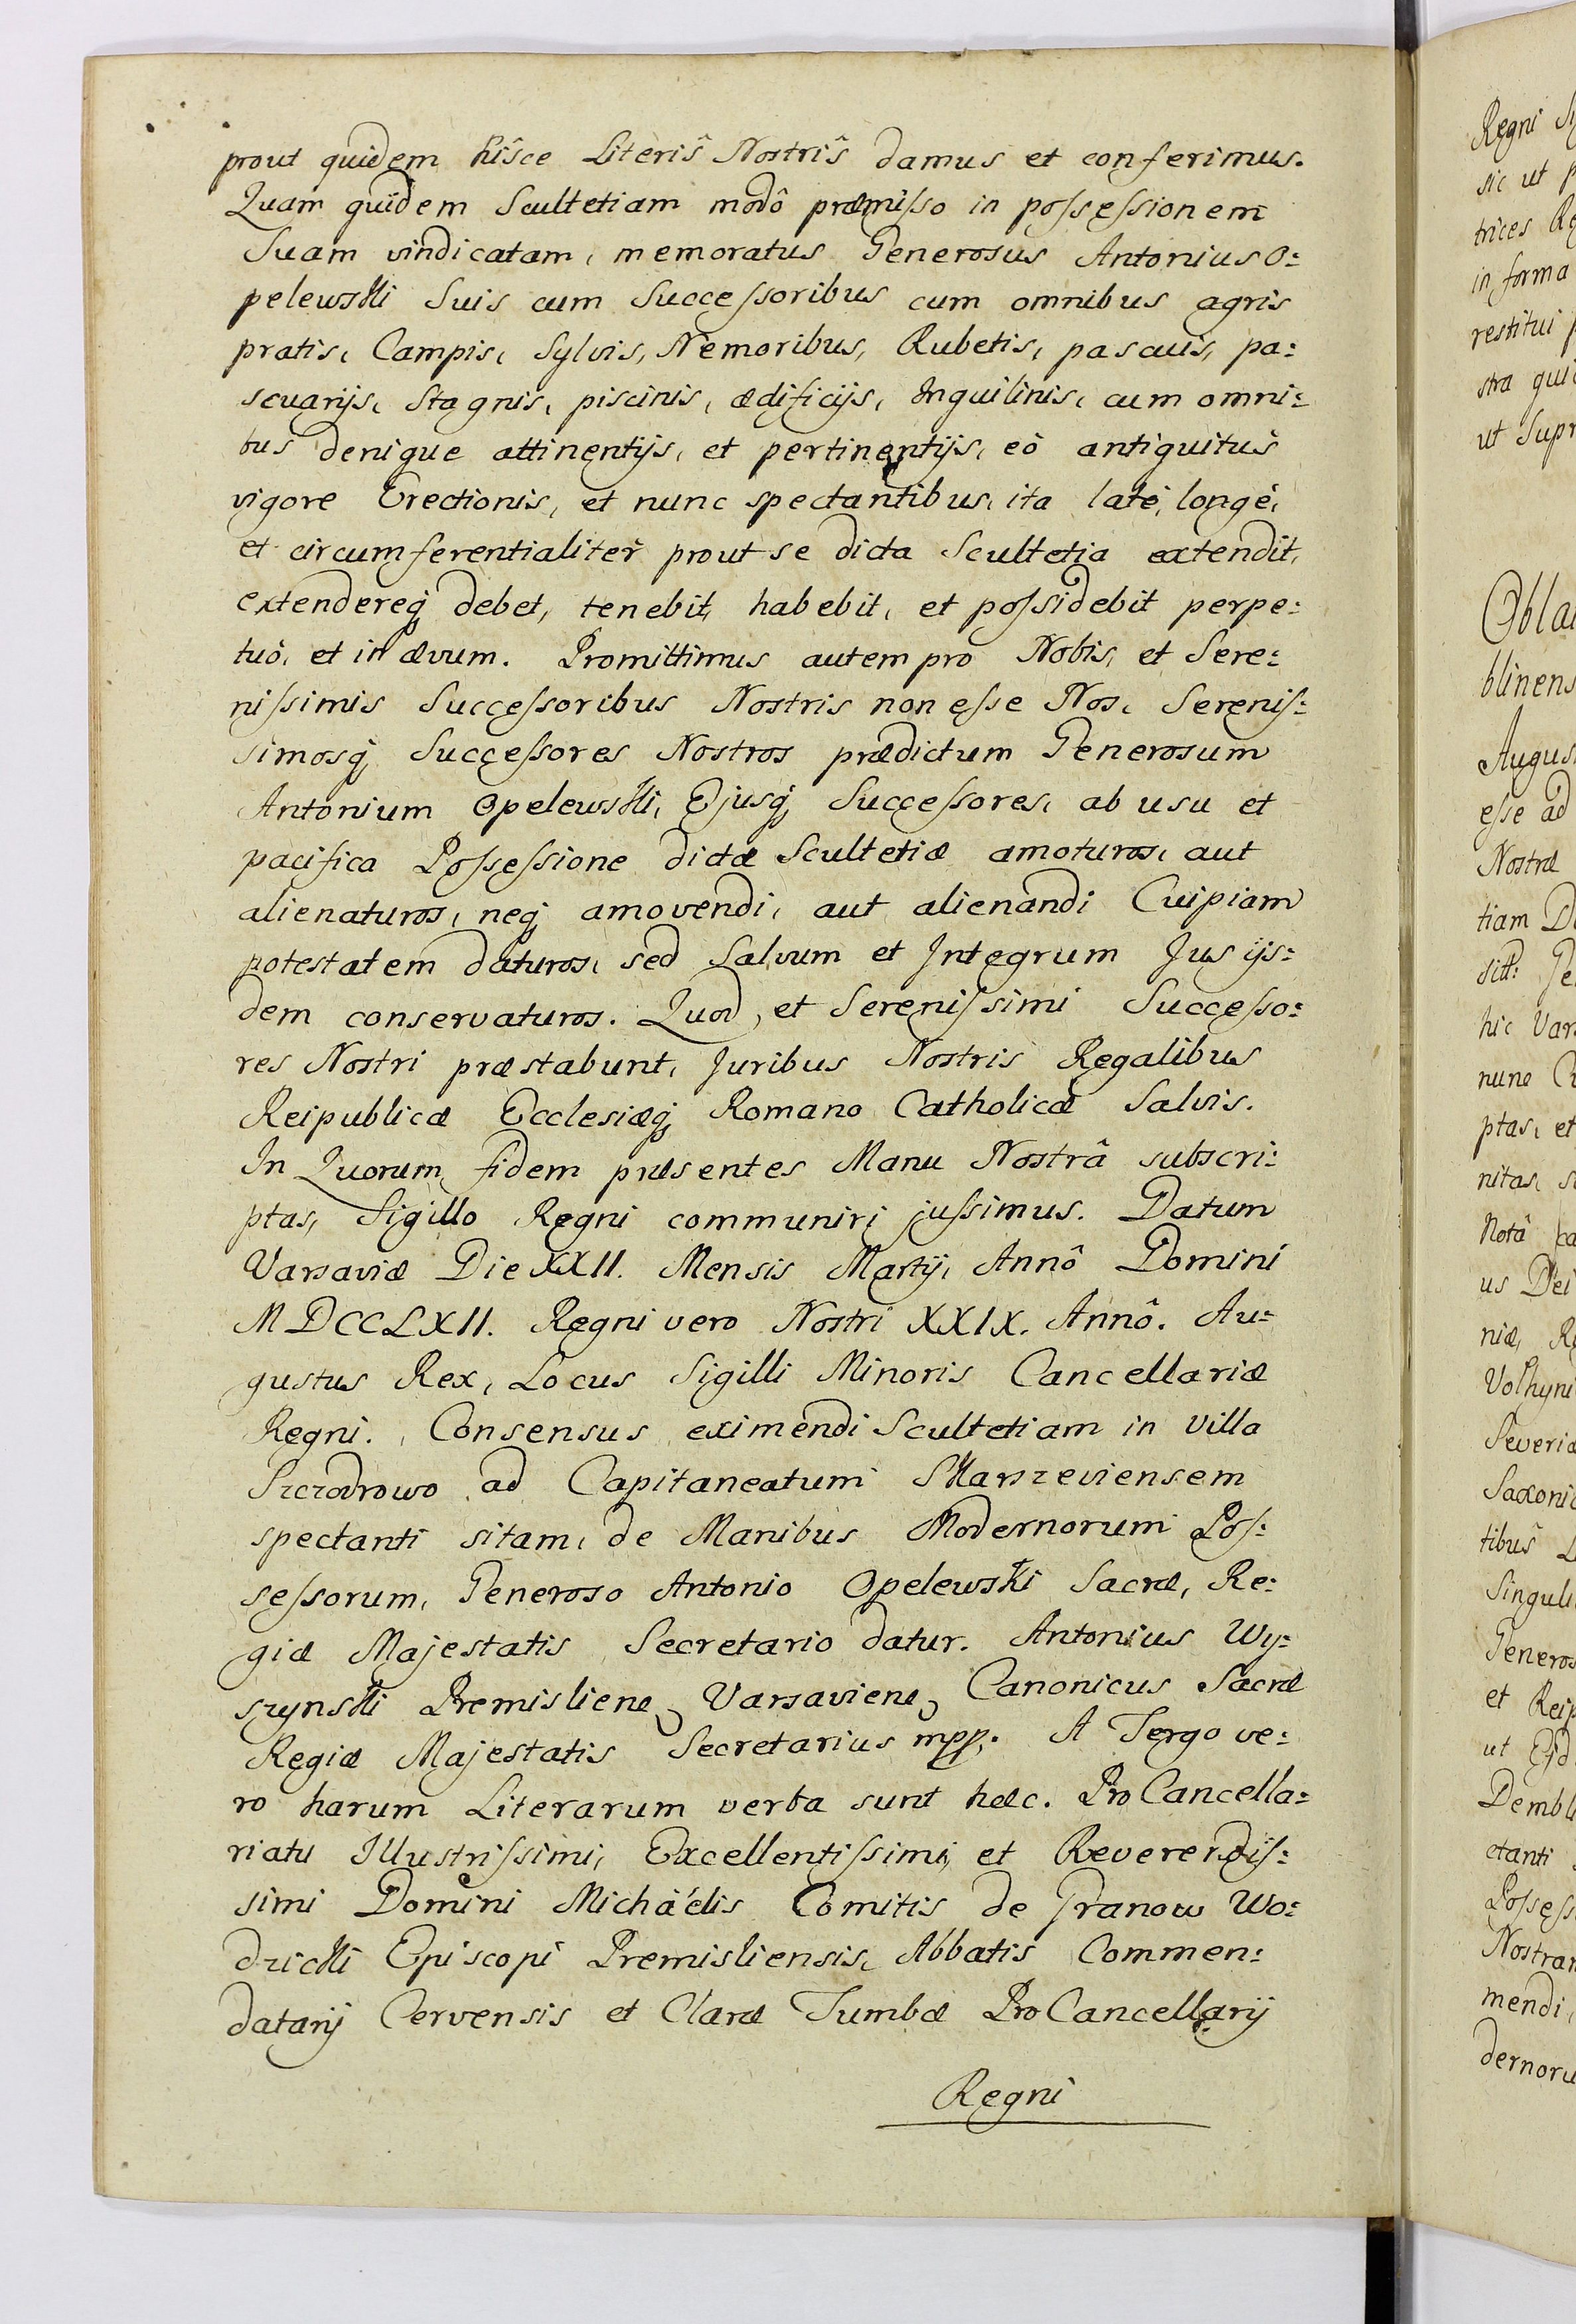 prout quidem hîsce Literîs Nostrîs damus et conferimus.
Quam quidem Scultetiam modô præmisso in possessionem
Suam vindicatam, memoratus Generosus Antonius O:
pelewski Suis cum Successoribus cum omnibus agris
pratis, Campis, Sylvis, Nemoribus, Rubetis, pascuis, pa:
scuarijs, Stagnis, piscinis, ædificijs, Inquilinis, cum omni:
bus denique attinentijs, et pertinentijs, eò antiquitus
vigore Erectionis, et nunc spectantibus, ita latè, longè,
et circumferentialiter prout se dicta Scultetia extendit,
extendereq; debet, tenebit, habebit, et possidebit perpe:
tuò, et in ævum. Promittimus autem pro Nobis, et Sere:
nissimis Successoribus Nostris non esse Nos, Serenis:
simosq; Successores Nostros prædictum Generosum
Antonium Opelewski, Ejusq; Successores, ab usu et
pacifica Possessione dictæ Scultetiæ amoturos, aut
alienaturos, neq; amovendi, aut alienandi Cuipiam
potestatem daturos, sed Salvum et Integrum Jus ijs:
dem conservaturos. Quod, et Serenissimi Successo:
res Nostri præstabunt, Juribus Nostris Regalibus
Reipublicæ Ecclesiæq; Romano Catholicæ Salvis.
In Quorum fidem præsentes Manu Nostrâ subscri:
ptas, Sigillo Regni communiri jussimus. Datum
Varsaviæ Die XXII. Mensis Martij, Annô Domini
MDCCLXII. Regni vero Nostri XXIX. Annô. Au:
gustus Rex, Locus Sigilli Minoris Cancellariæ
Regni. Consensus eximendi Scultetiam in villa
Szczodrowo ad Capitaneatum Skarszeviensem
spectanti sitam, de Manibus Modernorum Pos:
sessorum, Generoso Antonio Opelewski Sacræ, Re:
giæ Majestatis Secretario datur. Antonius Wy:
szynski Premisliens, Varsaviens, Canonicus Sacræ
Regiæ Majestatis Secretarius mpp. A Tergo ve:
ro harum Literarum verba sunt hæc. Pro Cancella:
riatu Illustrissimi, Excellentissimi, et Reverendis:
simi Domini Michaëlis Comitis de Granow Wo:
dzicki Episcopi Premisliensis, Abbatis Commen:
datarij Cervensis et Claræ Tumbæ Pro Cancellarij
Regni
Regni
sic ut
trices
in forma
restitui
stra
ut Supr
blinens
Augus
esse ad
Nostræ
tiam
hic Var
nunc
ptas, et
nitas,
Notâ
us Dei
niæ,
Volhyni
Severiæ
Saxoni
tibus
Singuli
Generos
et Reip
ut Ejd
Dembl
ctanti
Possess
Nostram
mendi,
dernoru